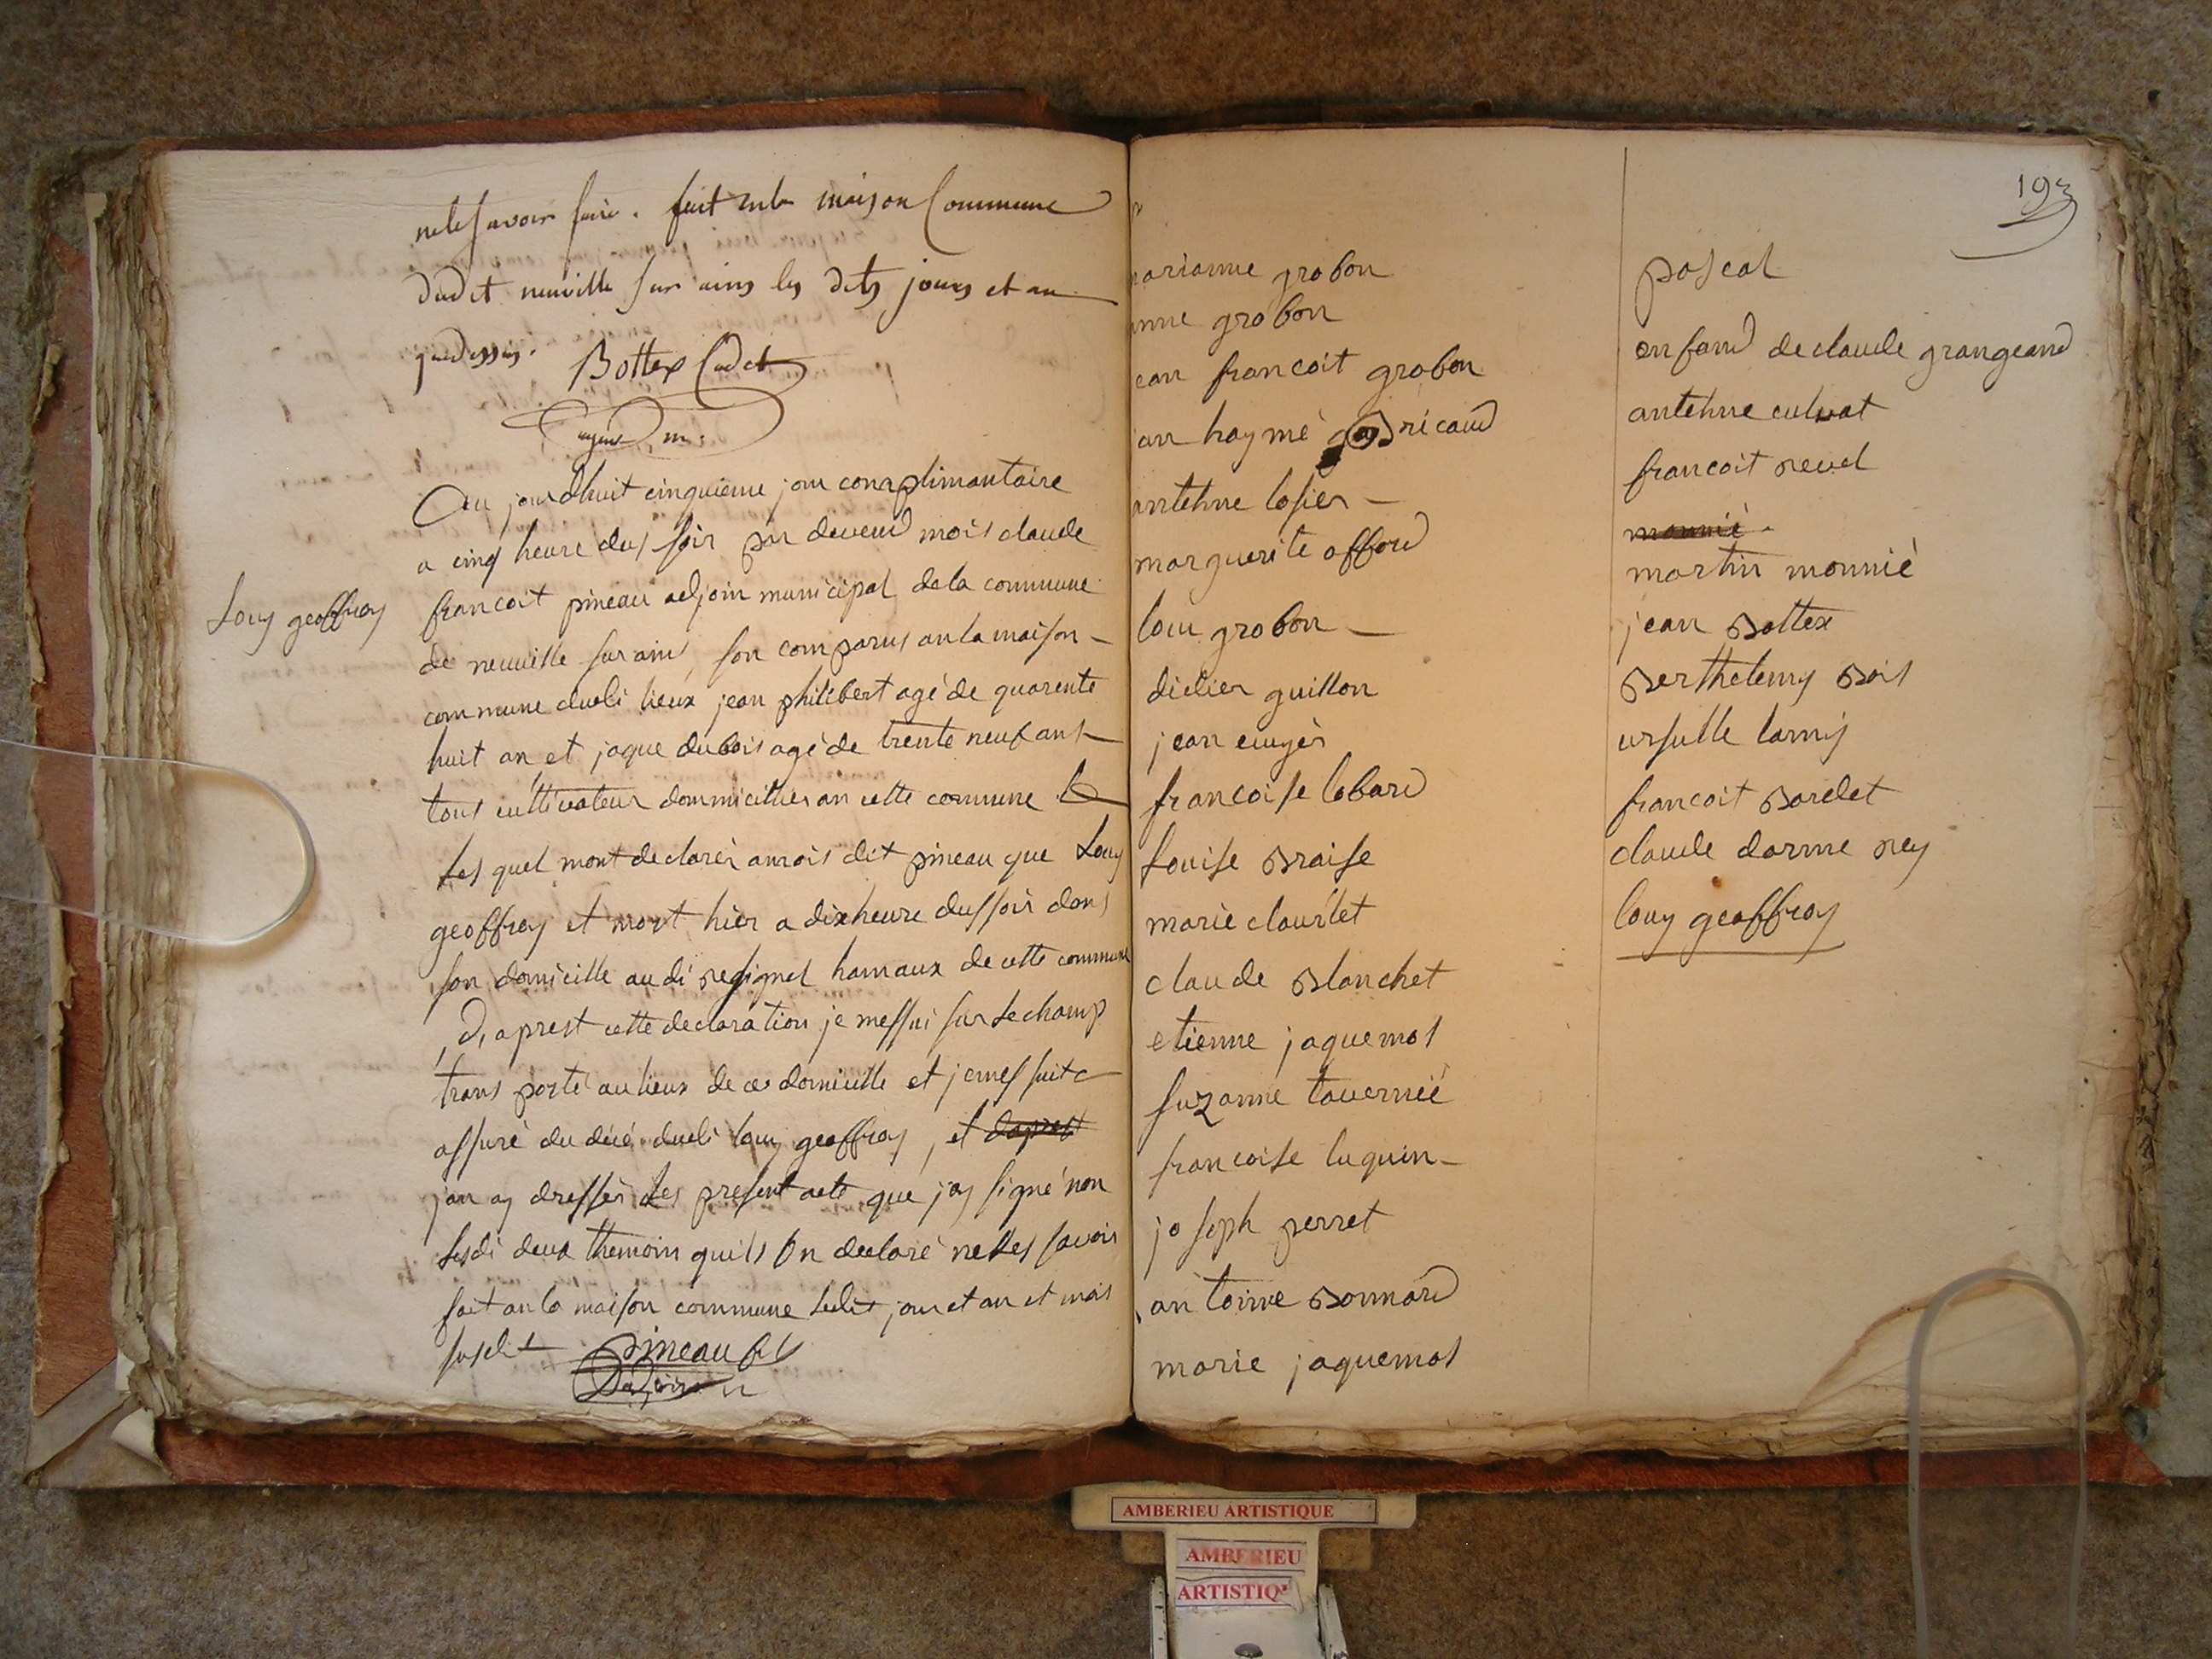 nele savoir faire. fait en la maison Commune
dudit neuville sur ains les dits jours et an
que dessus.
Bottex Cadet
Au jourdhuit cinquieme jour complimantaire
a cinq heure dus soir par devend mois claude
Louy geoffray
francoit pineau adjoin municipal de la commune
de neuville sur ains son comparus an la maison
commune dudi lieux jean philibert agé de quarente
huit an et jaque dubois agé de trente neuf ans
tous cultivateur dommicillier an cette commune
les quel mont declarér amois dit pineau que Louy
geoffray et mort hier a dix heure dus soir dans
son domicille audi resignel hamaux de cette commune
D, aprest cette declaration je messui sur le champ
trans porté au lieux de ce domicille et jemes suit
assuré du décé dudi louy geoffray, et daprest
jan ay dressér les present acte que jay signé non
lesdi deux themoin quils On declaré ne les savoir
fait an la maison commune ledit jour et an et mois
susdit pineau
193
marianne grobon
anne grobon
jean francoit grobon
jan haymé ricaud
antehne losier
marguerite affoud
louu grobon
didier guillon
jean cuugèr
francoise lobard
Louise Braise
marie clourlet
claude Blanchet
etienne jaquemos
suzanne tavernié
francoise luquin
joseph perret
antoinne Bonnard
marie jaquemos
pascal
enfand de claude grangeand
antehne culuat
francoit revel
monnié.
martin monnié
jean Bottex
Berthelemy Bois
ursulle lamy
francoit Borelet
claude darme rey
louy geoffray
AMBERIEU ARTISTIQUE
AMBERIEU
ARTISTIQ